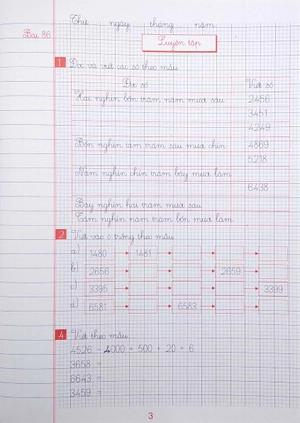 Thứ ngày tháng năm
Bài 86 Luyện tập
1 Đọc và viết các số theo mẫu
Đọc số Viết số
Hai nghìn bốn trăm năm mươi sáu 2456
3451
4249
Bốn nghìn tám trăm sáu mươi chín 4869
5218
Năm nghìn chín trăm bảy mươi lăm
6438
Bảy nghìn hai trăm mười sáu
Tám nghìn năm trăm bốn mươi lăm
2 Viết vào ô trống theo mẫu
a) 1480 1481
b) 2656 2659
c) 3395 3399
d) 6581 6583
4 Viết theo mẫu
4526 = 4000 + 500 + 20 + 6
3658 =
6643 =
3459 =
3